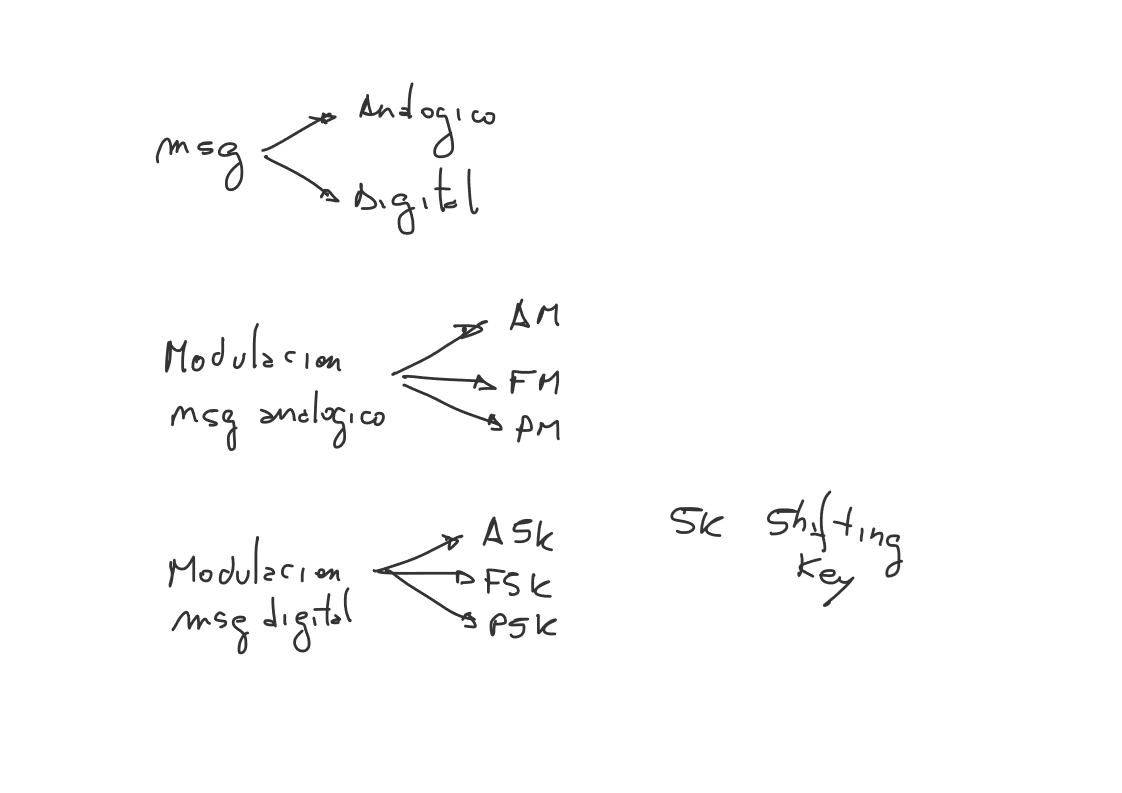 msg
Analogico
Digital
Modulacion
msg analogico
AM
FM
PM
Modulacion
msg digital
ASK
FSK
PSK
SK Shifting
Key